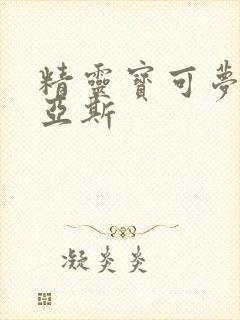 精靈寶可夢
亞斯
凝炎炎